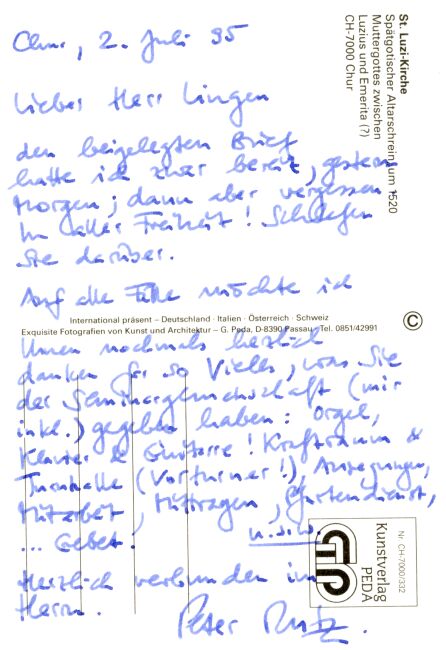 Chur, 2. Juli 95
Lieber Herr Lingen
den beigelegten Brief
hatte ich zwar bereit, gestern
Morgen; dann aber vergessen.
In aller Freiheit! Schlafen
Sie darüber.
Auf alle Fälle möchte ich
Ihnen nochmals herzlich
danken für so Vieles, was Sie
der Seminargemeinschaft (mir
inkl.) gegeben haben: Orgel,
Klavier & Guitarre! Kraftraum &
Turnhalle (Vorturner!), Anregungen,
Mitarbeit, Mittragen, Pfortendienst,
... Gebet! u.s.w.
Herzlich verbunden im
Herrn. Peter Rutz.
St. Luzi-Kirche
Spätgotischer Altarschrein um 1520
Muttergottes zwischen
Luzius und Emerita (?)
CH-7000 Chur
International präsent – Deutschland · Italien · Österreich · Schweiz
Exquisite Fotografien von Kunst und Architektur – G. Peda, D-8390 Passau, Tel. 0851/42991
©
Nr. CH-7000/332
Kunstverlag
PEDA